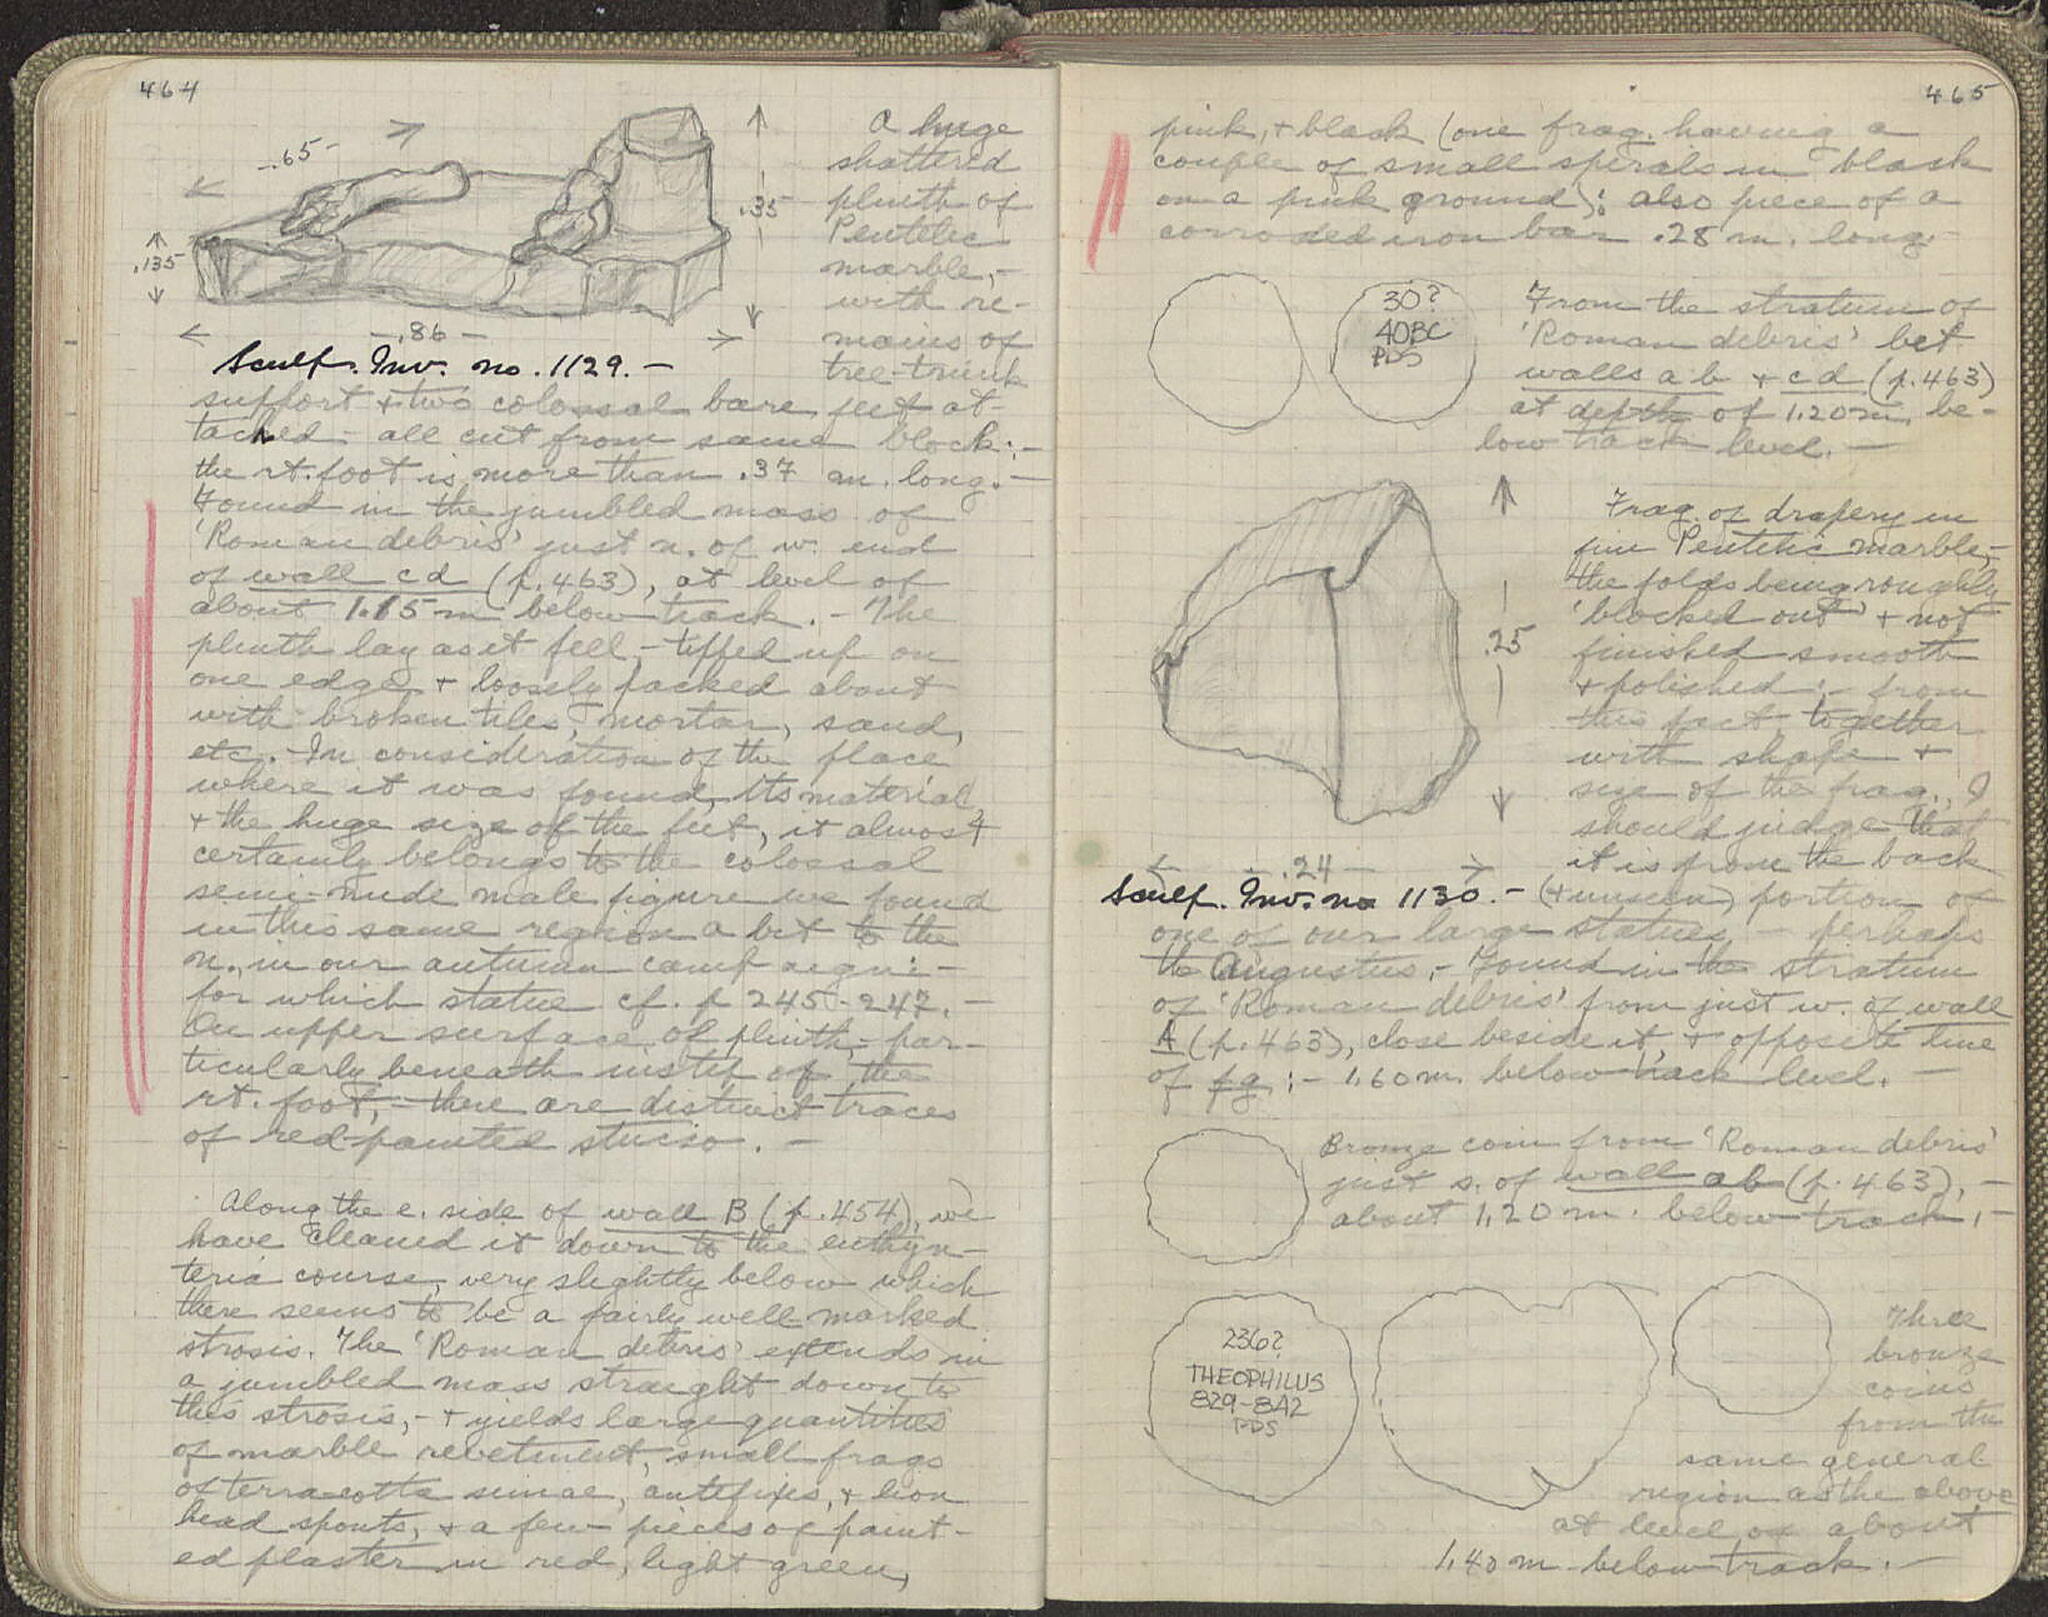 464
.65
.135
.35
.86
A huge
shattered
plinth of
Pentelic
marble, -
with re-
mains of
tree-trunk
Sculp. Inv. no. 1129. -
support + two colossal bare feet at-
tached - all cut from same block: -
the rt. foot is more than .37 m. long. -
Found in the jumbled mass of
'Roman debris' just n. of w. end
of wall cd (p. 463), at level of
about 1.15 m below track. - The
plinth lay as it fell, - tipped up on
one edge + loosely packed about
with broken tiles, mortar, sand,
etc. In consideration of the place
where it was found, its material,
+ the huge size of the feet, it almost
certainly belongs to the colossal
semi-nude male figure we found
in this same region a bit to the
n. in our autumn campaign: -
for which statue cf. p 245-247. -
On upper surface of plinth, - par-
ticularly beneath instep of the
rt. foot, - there are distinct traces
of red-painted stucco. -
Along the e. side of wall B (p. 454), we
have cleaned it down to the euthyn-
teria course, very slightly below which
there seems to be a fairly well marked
strosis. The 'Roman debris' extends in
a jumbled mass straight down to
this strosis, - + yields large quantities
of marble revetment, small frags
of terracotta simae, antefixes, + lion
head spouts, + a few pieces of paint-
ed plaster in red, light green,
465
pink, + black (one frag. having a
couple of small spirals in black
on a pink ground): also piece of a
corroded iron bar .28 m. long.
30?
40BC
PDS
From the stratum of
'Roman debris' bet
walls ab + cd (p. 463)
at depth of 1.20 m. be-
low track level. -
.25
.24
Frag. of drapery in
fine Pentelic marble, -
the folds being roughly
'blocked out' + not
finished smooth
+ polished: - from
this fact, together
with shape +
size of the frag., I
should judge that
it is from the back
Sculp. Inv. no 1130. - (+ unseen) portion of
one of our large statues - perhaps
the Augustus, - Found in the stratum
of 'Roman debris' from just w. of wall
A (p. 463), close beside it, + opposite line
of fg: - 1.60 m. below track level. -
Bronze coin from 'Roman debris'
just s. of wall ab (p. 463), -
about 1.20 m. below track. -
236?
THEOPHILUS
829-842
PDS
Three
bronze
coins
from the
same general
region as the above
at level of about
1.40 m below track. -